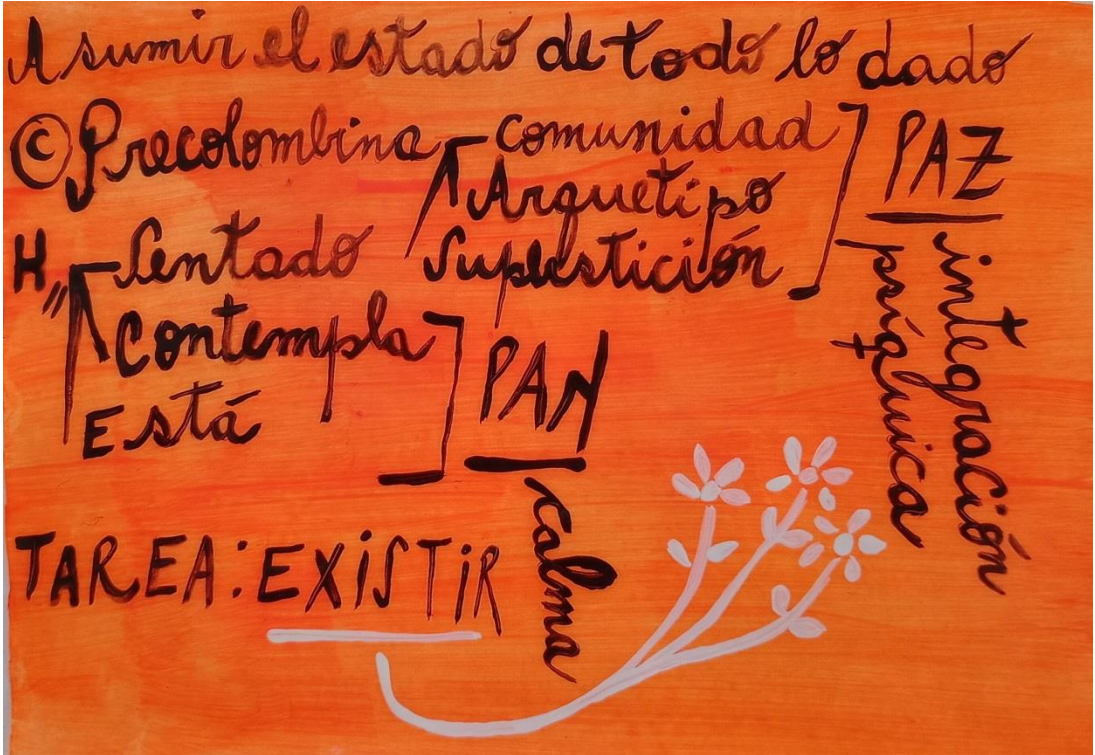 Asumir el estado de todo lo dado
© Precolombina
comunidad
Arquetipo
Superstición
PAZ
integración
psíquica
H
Sentado
Contempla
Está
PAN
calma
TAREA: EXISTIR